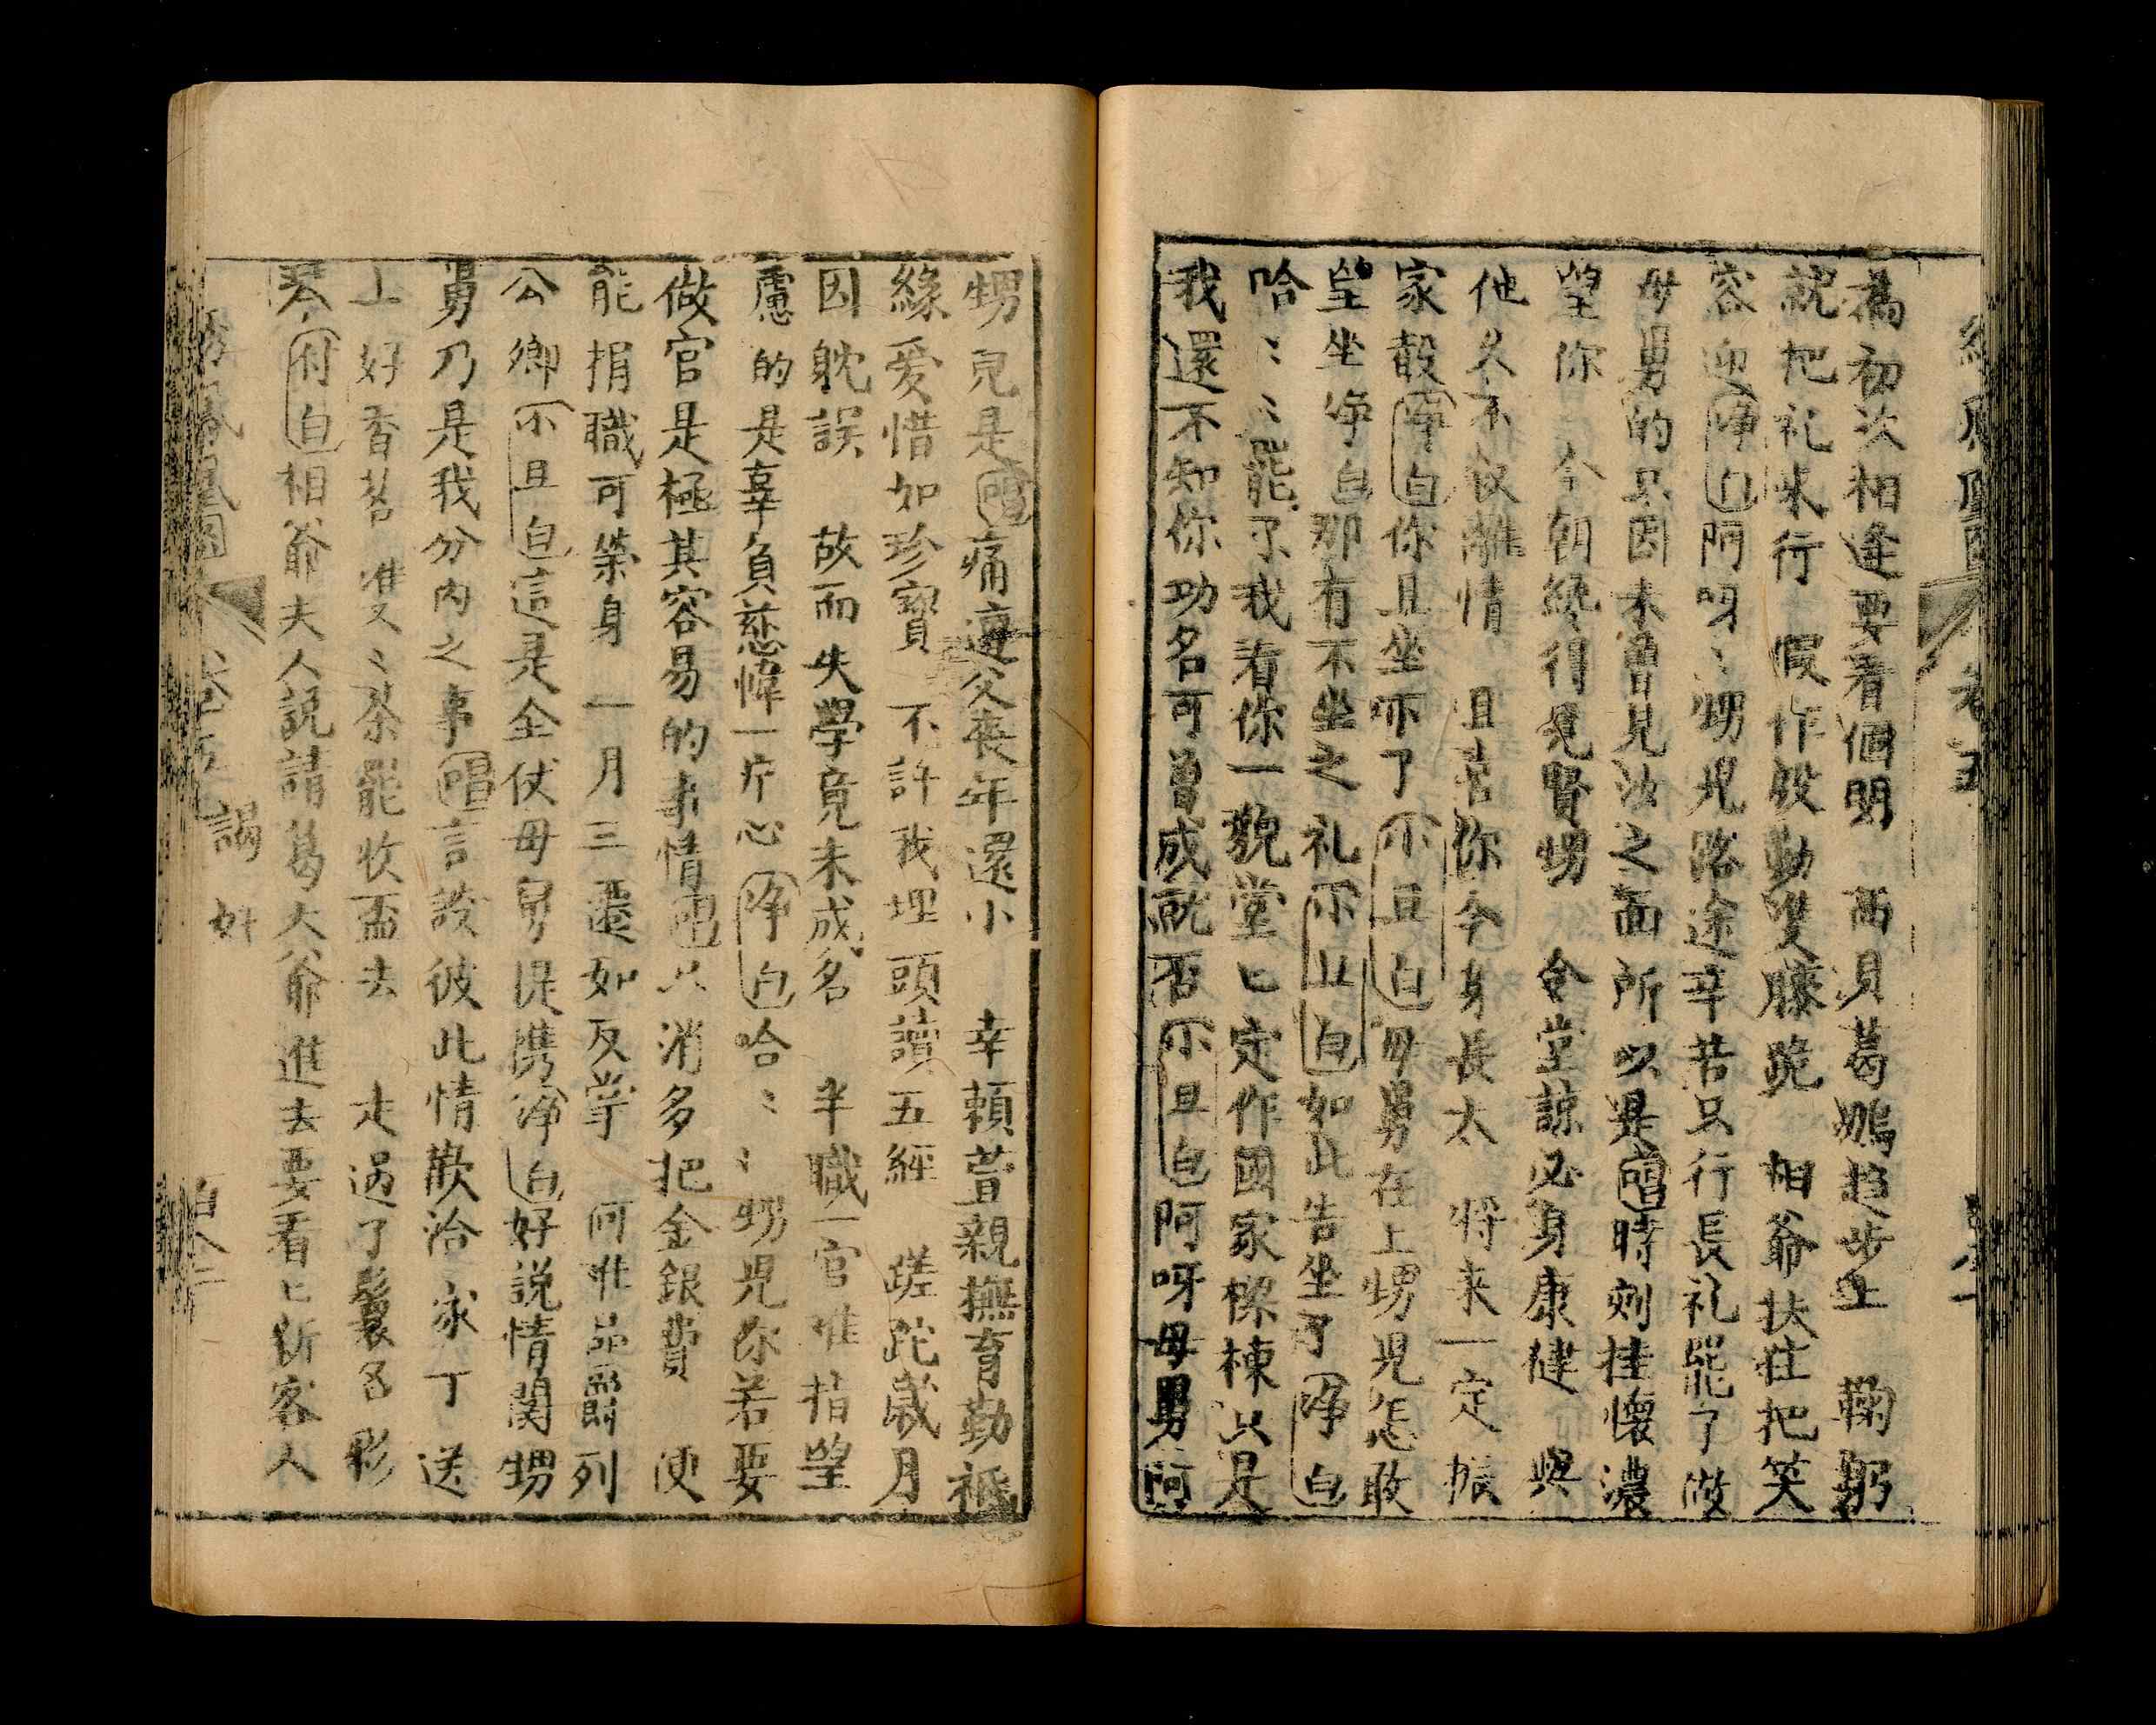 為初次相逢要看個明　両貝葛鴆趋步上　鞠躬
就把礼來行　假作殷勤雙膝跪　相爺扶住把笑
容迎净白阿呀ミ甥児路途辛苦只行長礼罷了做
母舅的只因未曾見汝之面所以是唱時刻挂懷濃
望你　今朝纔得見賢甥　令堂諒必身康健　與
他久不叙離情　且喜你今身長大　將来一定振
家殽净白你且坐下了不旦白母舅在上甥児怎敢
望坐净白那有不坐之礼不旦白如此告坐了净白
哈ミミ罷了我看你一貌堂匕定作國家樑棟只是
我還不知你功名可曾成就否不旦白阿呀母舅阿
甥児是唱痛遭父喪年還小　幸賴萱親撫育勤　祗
緣愛惜如珍寶　不許我埋頭讀五經　蹉跎歲月
因躭誤　故而失學竟未成名　半職一官唯指望
慮的是辜負慈幃一片心净白哈ミミ甥児你若要
做官是極其容易的事情唱只消多把金銀費　便
能捐職可榮身　一月三遷如反掌　何难品爵列
公鄉不旦白這是全仗母舅提携净白好説情関甥
舅乃是我分内之事唱言談彼此情歡洽　家丁送
上好香茗　雙ミ茶罷收盃去　走過了鬟名彩
琴付白相爺夫人説請葛大爺進去要看匕新客人